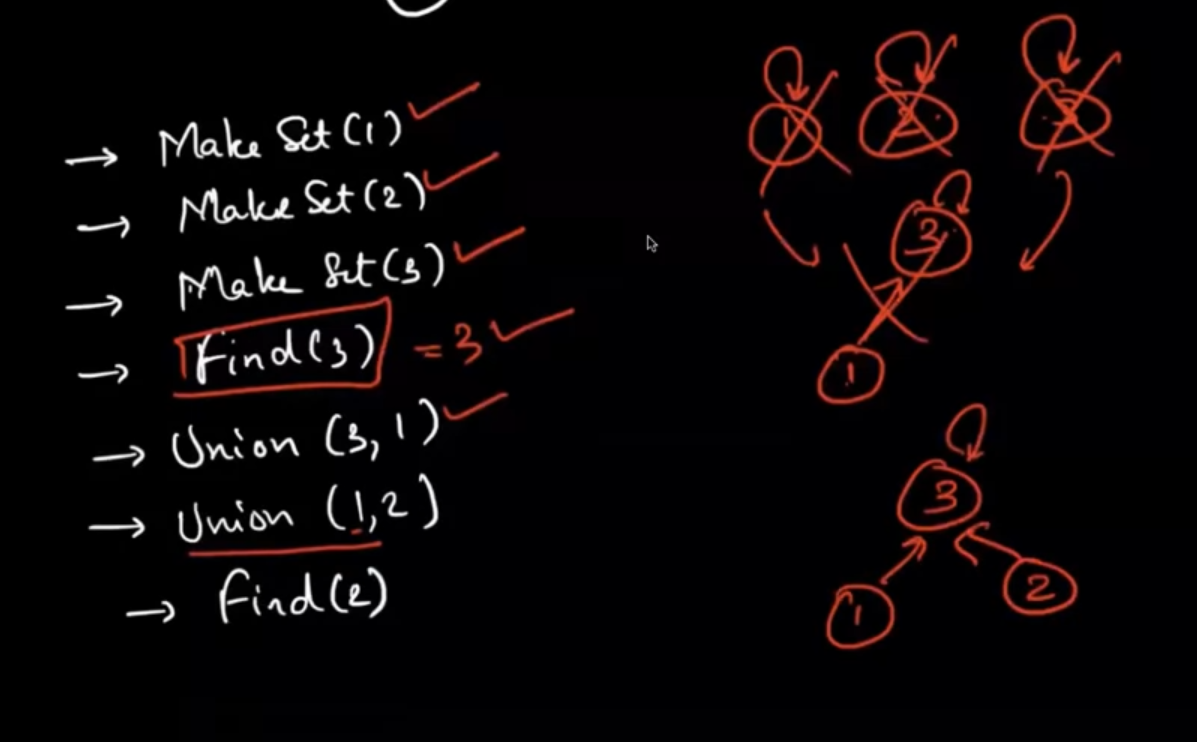 → Make Set (1) ✓
→ Make Set (2) ✓
→ Make Set (3) ✓
→ Find (3) = 3 ✓
→ Union (3, 1) ✓
→ Union (1, 2)
→ Find (2)
1
2
3
3
1
3
1
2